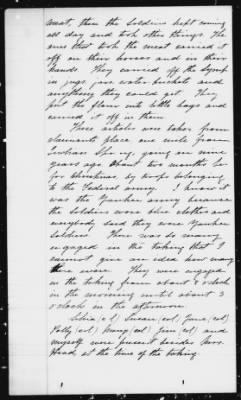 meat, then the soldiers kept coming
all day and took other things. The
ones that took the meat carried it
off on their horses and in their
hands. They carried off the syrup
in jugs, jars, water buckets and
anything they could get. They
put the flour into little bags and
carried it off in them.
These articles were taken from
claimants place one mile from
years ago about two months be
for Christmas, by troops belonging
to the Federal army. I know it
was the Yankee army because
the soldiers wore blue clothes and
everybody said they were Yankee
soldiers. There was so many
engaged in the taking that I
cannot give an idea how many
there were. They were engaged
in the taking from about 8 o'clock
in the morning until about 3
o'clock in the afternoon.
Silvia (col) Susan (col) June (col)
Polly (col) Mary (col) Jim (col) and
myself were present besides Mrs.
Head at the time of the taking.